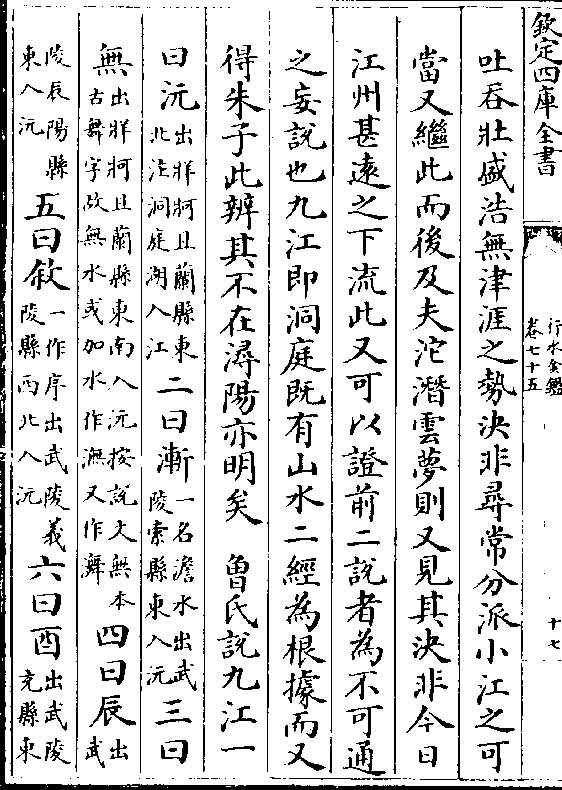 欽定四庫全書
行水金鑑
卷七十五
十七
吐吞壯盛浩無津涯之勢決非尋常分派小江之可
當又繼此而後及夫沱潛雲夢則又見其決非今日
江州甚遠之下流此又可以證前二說者為不可通
之妄說也九江即洞庭既有山水二經為根據而又
得朱子此辨其不在潯陽亦明矣　魯氏說九江一
曰沅出牂牁且蘭縣東北注洞庭湖入江二曰漸一名澹水出武陵索縣東入沅三曰
無出牂牁且蘭縣東南入沅按說文無本古舞字故無水或加水作潕又作舞四曰辰出武
陵辰陽縣東入沅五曰敘一作序出武陵義陵縣西北入沅六曰酉出武陵充縣東